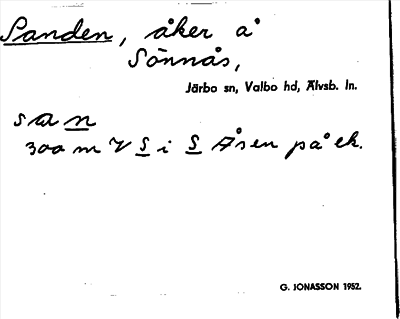 Sanden, åker å
Sönnås,
Järbo sn, Valbo hd, Älvsb. ln.
san
300 m V S i S Åsen på ek.
G. JONASSON 1952.